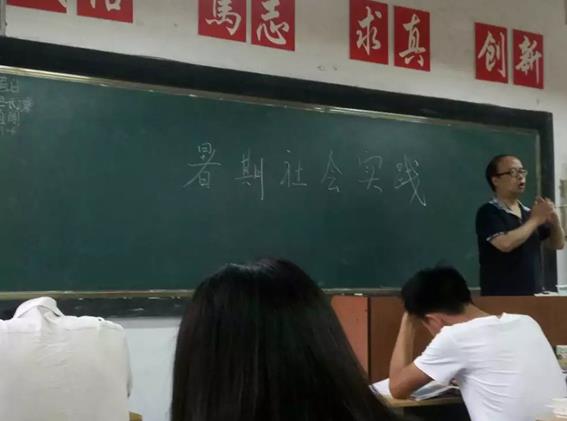 篤志 求真 创新
暑期社会实践